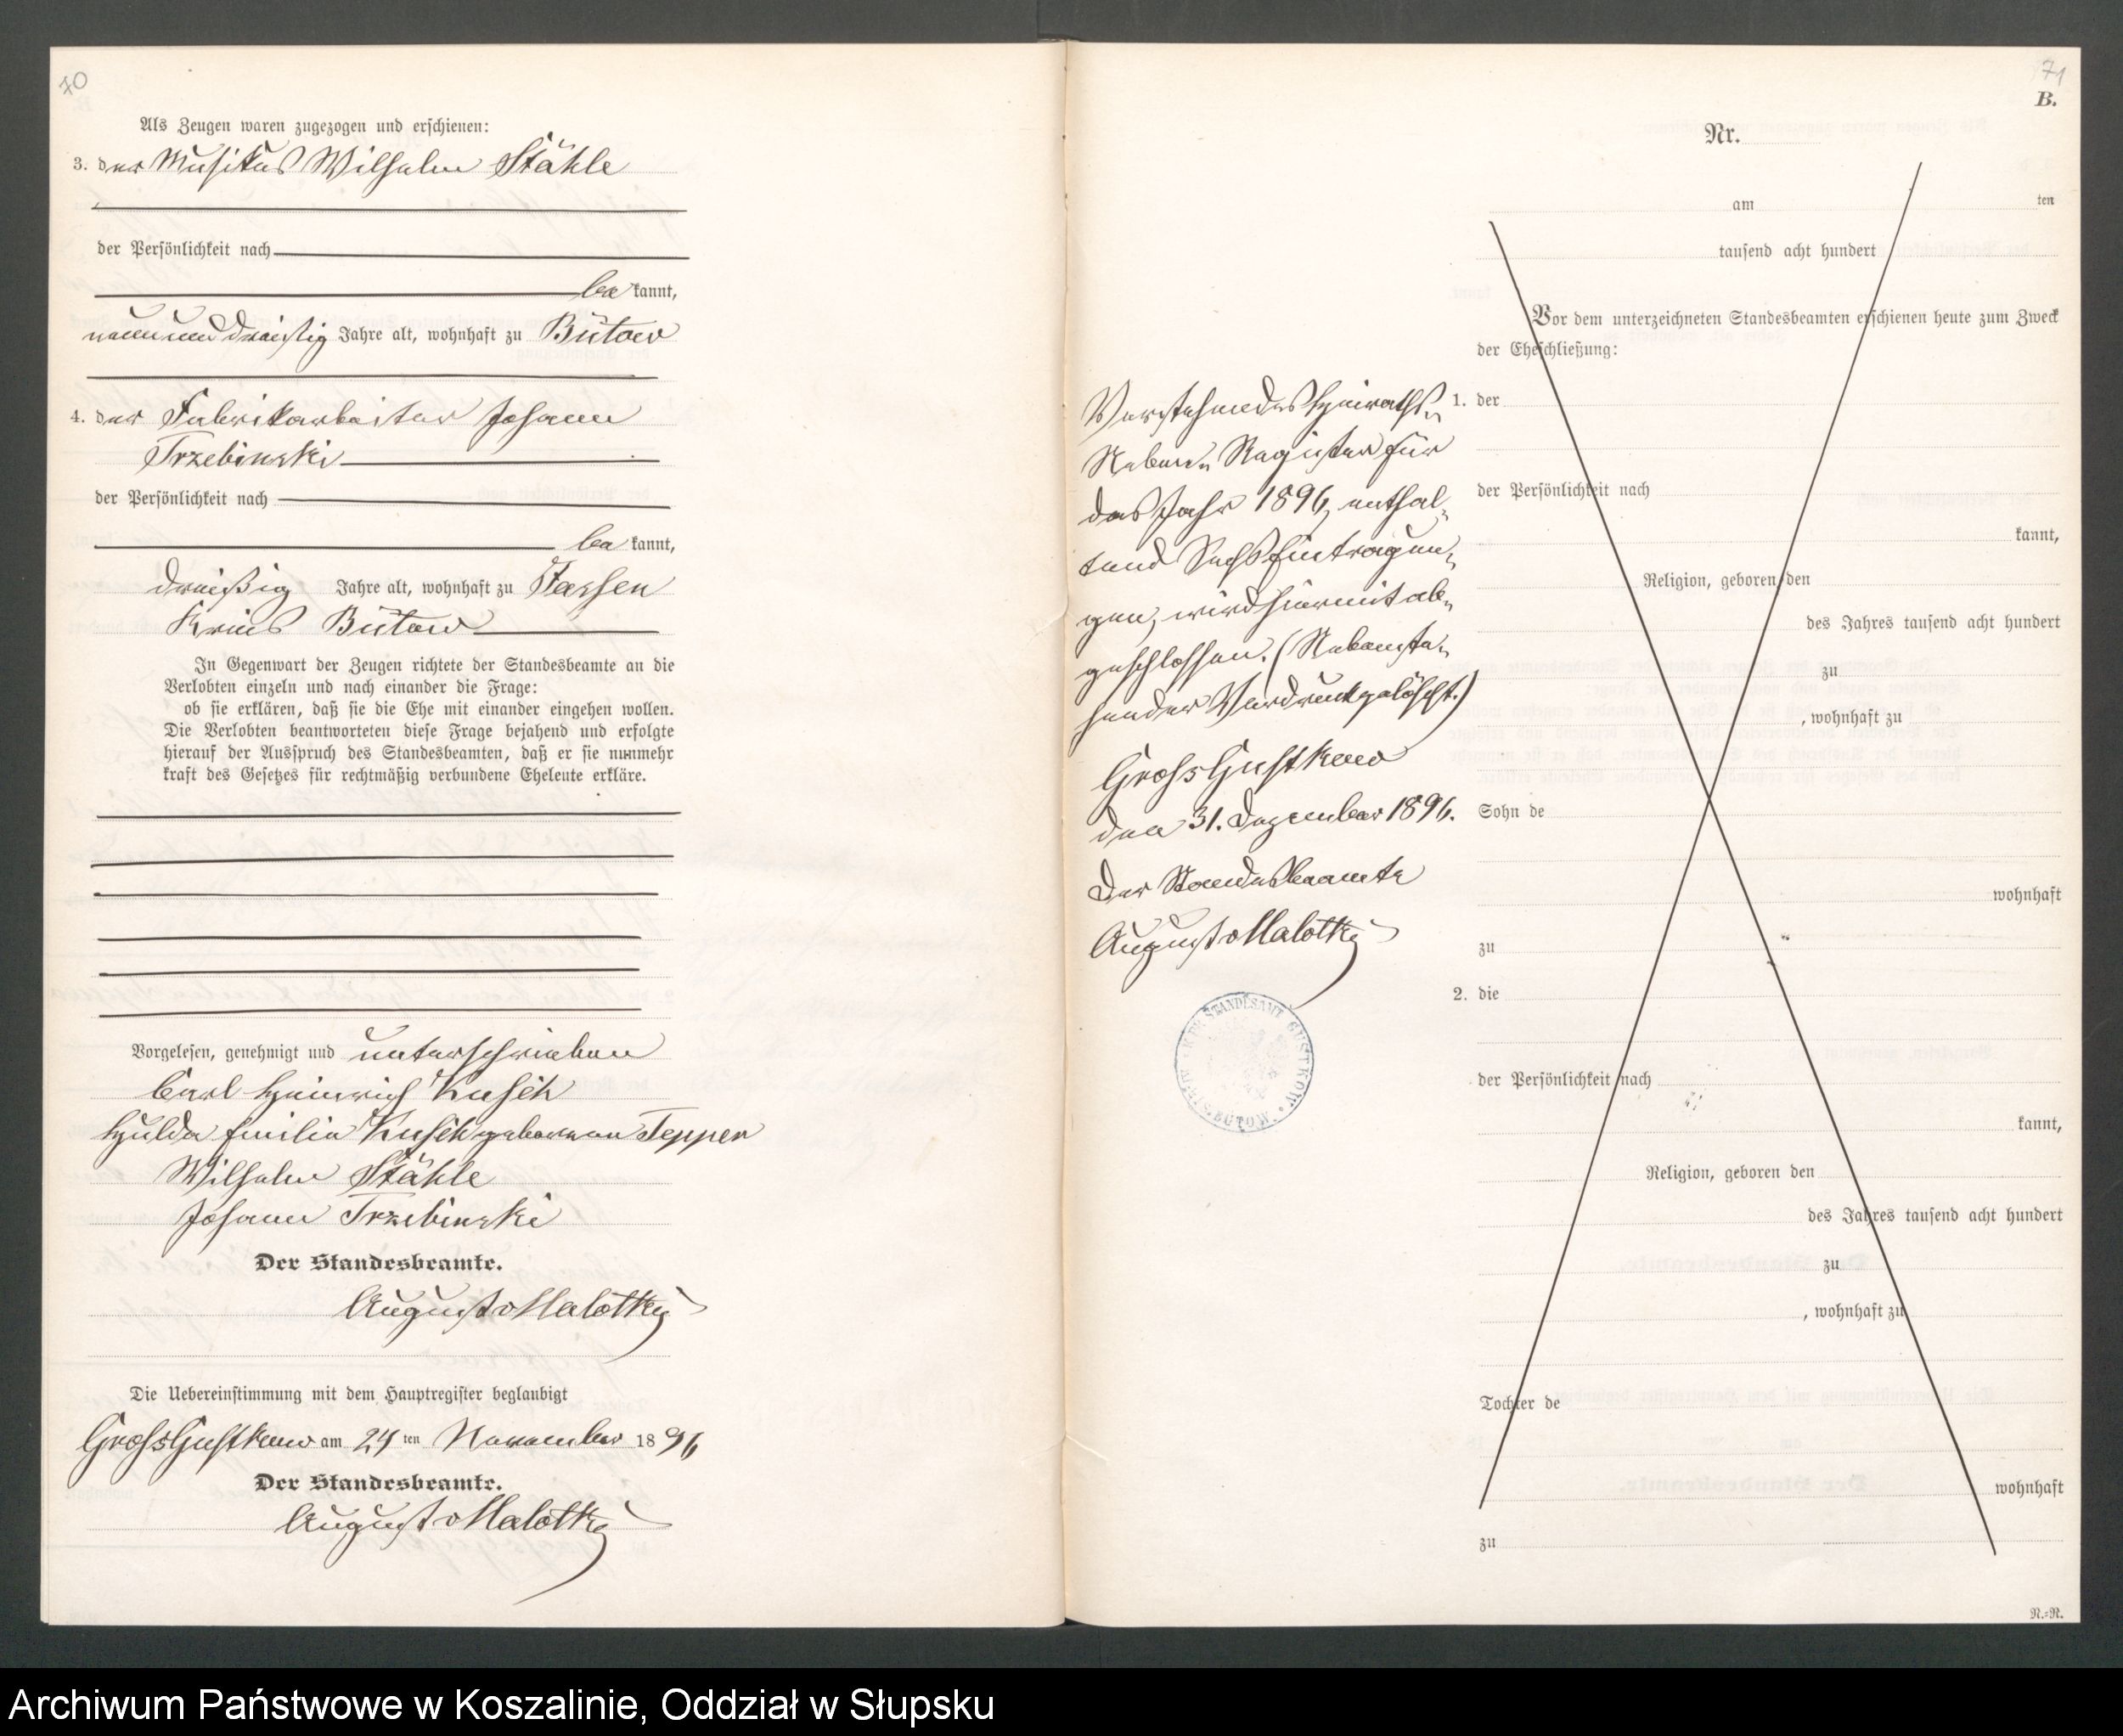 70
Als Zeugen waren zugezogen und erschienen:
3. der Musikus Wilhelm Stähle
der Persönlichkeit nach
be kannt,
neununddreißig Jahre alt, wohnhaft zu Bütow
4. der Fabrikarbeiter Johann
Trzebinski
der Persönlichkeit nach
be kannt,
dreißig Jahre alt, wohnhaft zu Tassen
Kreis Bütow
In Gegenwart der Zeugen richtete der Standesbeamte an die
Verlobten einzeln und nach einander die Frage:
ob sie erklären, daß sie die Ehe mit einander eingehen wollen.
Die Verlobten beantworteten diese Frage bejahend und erfolgte
hierauf der Ausspruch des Standesbeamten, daß er sie nunmehr
kraft des Gesetzes für rechtmäßig verbundene Eheleute erkläre.
Vorgelesen, genehmigt und unterschrieben
Carl Heinrich Kusch
Hulda Emilie Kusch geborenen Tepper
Wilhelm Stähle
Johann Trzebinski
Der Standesbeamte.
August v Malottky
Die Uebereinstimmung mit dem Hauptregister beglaubigt
Gross Gustkow am 24 ten November 18 96
Der Standesbeamte.
August v Malottky
71
B.
Nr.
am ten
tausend acht hundert
Vor dem unterzeichneten Standesbeamten erschienen heute zum Zweck
der Eheschließung:
1. der
der Persönlichkeit nach
kannt,
Religion, geboren den
des Jahres tausend acht hundert
zu
, wohnhaft zu
Sohn de
wohnhaft
zu
2. die
der Persönlichkeit nach
kannt,
Religion, geboren den
des Jahres tausend acht hundert
zu
, wohnhaft zu
Tochter de
wohnhaft
zu
N.-N.
Vorstehendes Heiraths-
Neben-Register für
das Jahr 1896, enthal-
tend Sechs Eintragun-
gen, wird hiermit ab-
geschlossen. (Nebenste-
hender Vordruck gelöscht.)
Gross Gustkow
den 31. Dezember 1896.
Der Standesbeamte
August v Malottky
STANDESAMT GUSTKOW
BÜTOW
Archiwum Państwowe w Koszalinie, Oddział w Słupsku